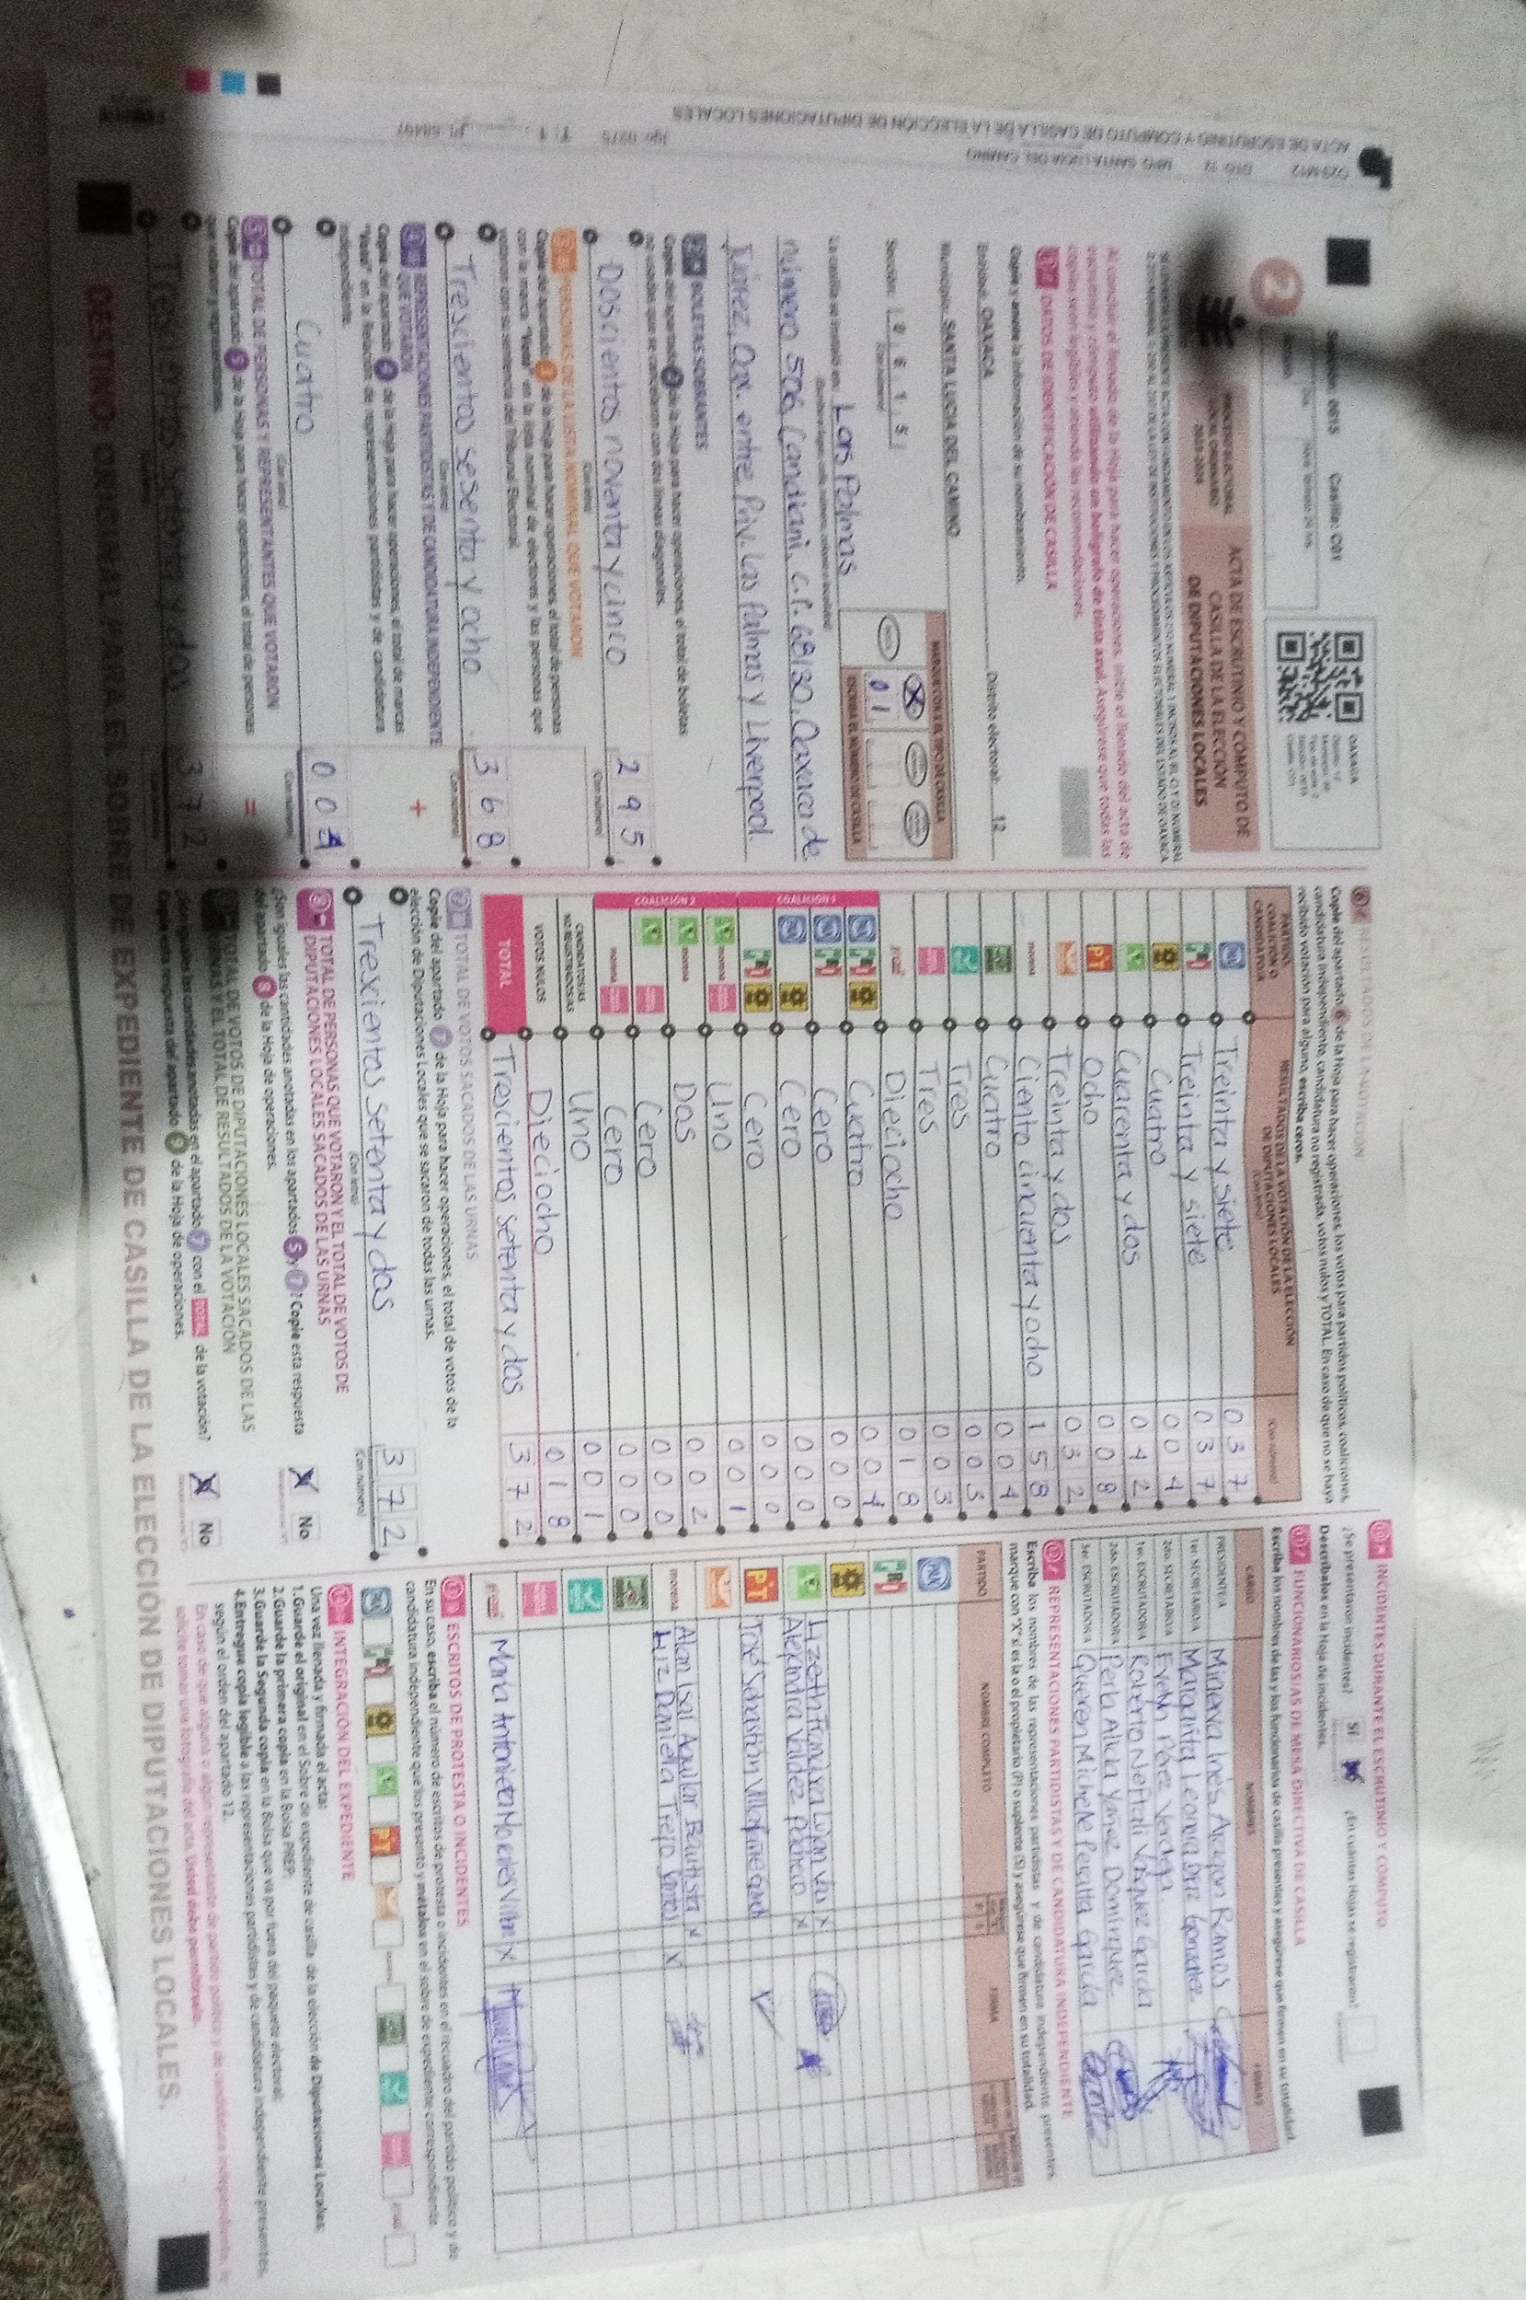 ACTA DE ESCRUTINIO Y CÓMPUTO DE CASILLA DE LA ELECCIÓN DE DIPUTACIONES LOCALES
MPO: SANTA LUCIA DEL CAMINO
Sección: 0615 Casilla: C01
OAXACA
2
PROCESO ELECTORAL
LOCAL ORDINARIO
2023-2024
ACTA DE ESCRUTINIO Y CÓMPUTO DE
CASILLA DE LA ELECCIÓN
DE DIPUTACIONES LOCALES
Al concluir el llenado de la Hoja para hacer operaciones, inicie el llenado del acta de
escrutinio y cómputo utilizando un bolígrafo de tinta azul. Asegúrese que todas las
copias sean legibles y atienda las recomendaciones.
1 DATOS DE IDENTIFICACIÓN DE CASILLA
Copie y anote la información de su nombramiento.
Entidad: OAXACA Distrito electoral: 12
Municipio: SANTA LUCIA DEL CAMINO
Sección: 0 6 1 5
MARQUE CON X EL TIPO DE CASILLA
X
0 1
ESCRIBA EL NÚMERO DE CASILLA
La casilla se instaló en: Las Palmas
número 506, Candiani, C.P. 68130, Oaxaca de
Juárez, Oax. entre Priv. Las Palmas y Liverpool.
2 BOLETAS SOBRANTES
Copie del apartado 2 de la Hoja para hacer operaciones, el total de boletas
no usadas que se cancelaron con dos líneas diagonales.
Doscientos noventa y cinco 2 9 5
(Con letra) (Con número)
3 PERSONAS DE LA LISTA NOMINAL QUE VOTARON
Copie del apartado 3 de la Hoja para hacer operaciones, el total de personas
con la marca "Votó" en la lista nominal de electores y las personas que
votaron con su sentencia del Tribunal Electoral.
Trescientos sesenta y ocho 3 6 8
(Con letra) (Con número)
4 REPRESENTACIONES PARTIDISTAS Y DE CANDIDATURA INDEPENDIENTE
QUE VOTARON
+
Copie del apartado 4 de la Hoja para hacer operaciones, el total de marcas
"Votó" en la Relación de representaciones partidistas y de candidatura
independiente.
Cuatro 0 0 4
(Con letra) (Con número)
5 TOTAL DE PERSONAS Y REPRESENTANTES QUE VOTARON
=
Copie del apartado 5 de la Hoja para hacer operaciones, el total de personas
que votaron y representantes.
Trescientos setenta y dos 3 7 2
6 RESULTADOS DE LA VOTACIÓN
Copie del apartado 6 de la Hoja para hacer operaciones, los votos para partidos políticos, coaliciones,
candidatura independiente, candidatura no registrada, votos nulos y TOTAL. En caso de que no se haya
recibido votación para alguno, escriba ceros.
PARTIDO,
COALICIÓN O
CANDIDATURA
RESULTADOS DE LA VOTACIÓN DE LA ELECCIÓN
DE DIPUTACIONES LOCALES
(Con letra)
(Con número)
PAN Treinta y siete 0 3 7
PRI Treinta y siete 0 3 7
Cuatro 0 0 4
Cuarenta y dos 0 4 2
PT Ocho 0 0 8
Treinta y dos 0 3 2
morena Ciento cincuenta y ocho 1 5 8
Cuatro 0 0 4
Tres 0 0 3
Tres 0 0 3
Dieciocho 0 1 8
COALICIÓN 1
Cuatro 0 0 4
Cero 0 0 0
Cero 0 0 0
Cero 0 0 0
COALICIÓN 2
Uno 0 0 1
Dos 0 0 2
Cero 0 0 0
Cero 0 0 0
CANDIDATOS/AS
NO REGISTRADOS/AS Uno 0 0 1
VOTOS NULOS Dieciocho 0 1 8
TOTAL Trescientos setenta y dos 3 7 2
7 TOTAL DE VOTOS SACADOS DE LAS URNAS
Copie del apartado 7 de la Hoja para hacer operaciones, el total de votos de la
elección de Diputaciones Locales que se sacaron de todas las urnas.
Trescientos setenta y dos 3 7 2
(Con letra) (Con número)
8 TOTAL DE PERSONAS QUE VOTARON Y EL TOTAL DE VOTOS DE
DIPUTACIONES LOCALES SACADOS DE LAS URNAS
¿Son iguales las cantidades anotadas en los apartados 5 y 7? Copie esta respuesta
del apartado 8 de la Hoja de operaciones.
X No
9 TOTAL DE VOTOS DE DIPUTACIONES LOCALES SACADOS DE LAS
URNAS Y EL TOTAL DE RESULTADOS DE LA VOTACIÓN
¿Son iguales las cantidades anotadas en el apartado 7 con el TOTAL de la votación?
Copie esta respuesta del apartado 9 de la Hoja de operaciones.
X No
10 INCIDENTES DURANTE EL ESCRUTINIO Y CÓMPUTO
¿Se presentaron incidentes? Sí X ¿En cuántas Hojas se registraron?
Descríbalos en la Hoja de incidentes.
11 FUNCIONARIOS/AS DE MESA DIRECTIVA DE CASILLA
Escriba los nombres de las y los funcionarios de casilla presentes y asegúrese que firmen en su totalidad.
CARGO NOMBRES FIRMAS
PRESIDENTE/A Minerva Inés Aragon Ramos
1er. SECRETARIO/A Margarita Leonor Diaz González
2do. SECRETARIO/A Evelin Pérez Verdega
1er. ESCRUTADOR/A Roberto Neftali Vasquez García
2do. ESCRUTADOR/A Perla Alicia Yañez Dominguez
3er. ESCRUTADOR/A Queren Michelle Peralta García
12 REPRESENTACIONES PARTIDISTAS Y DE CANDIDATURA INDEPENDIENTE
Escriba los nombres de las representaciones partidistas y de candidatura independiente presentes,
marque con "X" si es la o el propietario (P) o suplente (S) y asegúrese que firmen en su totalidad.
PARTIDO NOMBRE COMPLETO FIRMA
Alejandra Valdez Pacheco x
PT José Sebastián
morena Alan Isai Aguilar Bautista x
Daniela Trejo Santos x
Maria Antonieta Morales Villar x
13 ESCRITOS DE PROTESTA O INCIDENTES
En su caso, escriba el número de escritos de protesta o incidentes en el recuadro del partido político y de
candidatura independiente que los presentó y métalos en el sobre de expediente correspondiente.
14 INTEGRACIÓN DEL EXPEDIENTE
Una vez llenada y firmada el acta:
1. Guarde el original en el Sobre de expediente de casilla de la elección de Diputaciones Locales.
2. Guarde la primera copia en la Bolsa PREP.
3. Guarde la Segunda copia en la Bolsa que va por fuera del paquete electoral.
4. Entregue copia legible a las representaciones partidistas y de candidatura independiente presentes,
según el orden del apartado 12.
En caso de que alguna o algún representante de partido político y de candidatura independiente, le
solicite tomar una fotografía del acta, usted debe permitírselo.
DESTINO: ORIGINAL PARA EL SOBRE DE EXPEDIENTE DE CASILLA DE LA ELECCIÓN DE DIPUTACIONES LOCALES.